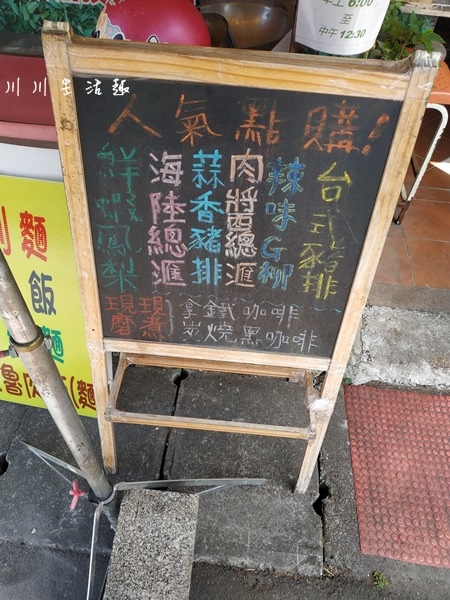 川川生活趣
上 6:00
至
中午 12:30
人氣點購！
台式豬排
辣味G柳
肉將西總滙
蒜香豬排
海陸總滙
鮮蝦鳳梨
現煮
現磨
拿鐵咖啡
炭燒黑咖啡
麵
飯
麵
魯肉
(麵